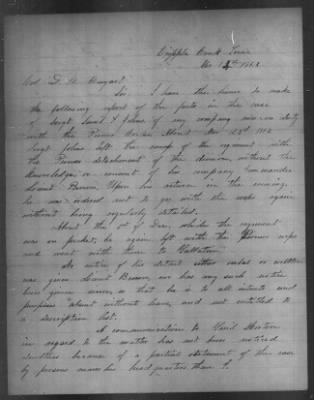 Cripple Creek, Tenn
Dec 12th 1862.
Col. D. H.
Sir. I have the honor to make
the following report of the facts in the case
of Sergt. Samuel of my company now on duty
with the Pioneer Corps. About Nov 23d 1862
Sergt left the camp of the regiment with
the Pioneer detachment of the division, without the
knowledge or consent of his company commander
Lieut Benson. Upon his return in the evening,
he was ordered not to go with the corps again
without being regularly detailed.
About the 1st of Dec, whilst the regiment
was on picket, he again left with the Pioneer corps
and went with them to Gallatin.
No notice of his detail either verbal or written
was given Lieut Benson, nor has any such notice
been given since, so that he is to all intents and
purposes "absent without leave, and not entitled to
a descriptive list.
A communication to Lieut
in regard to the matter has not been noticed
doubtless because of a partial statement of the case
by persons nearer his headquarters than I.